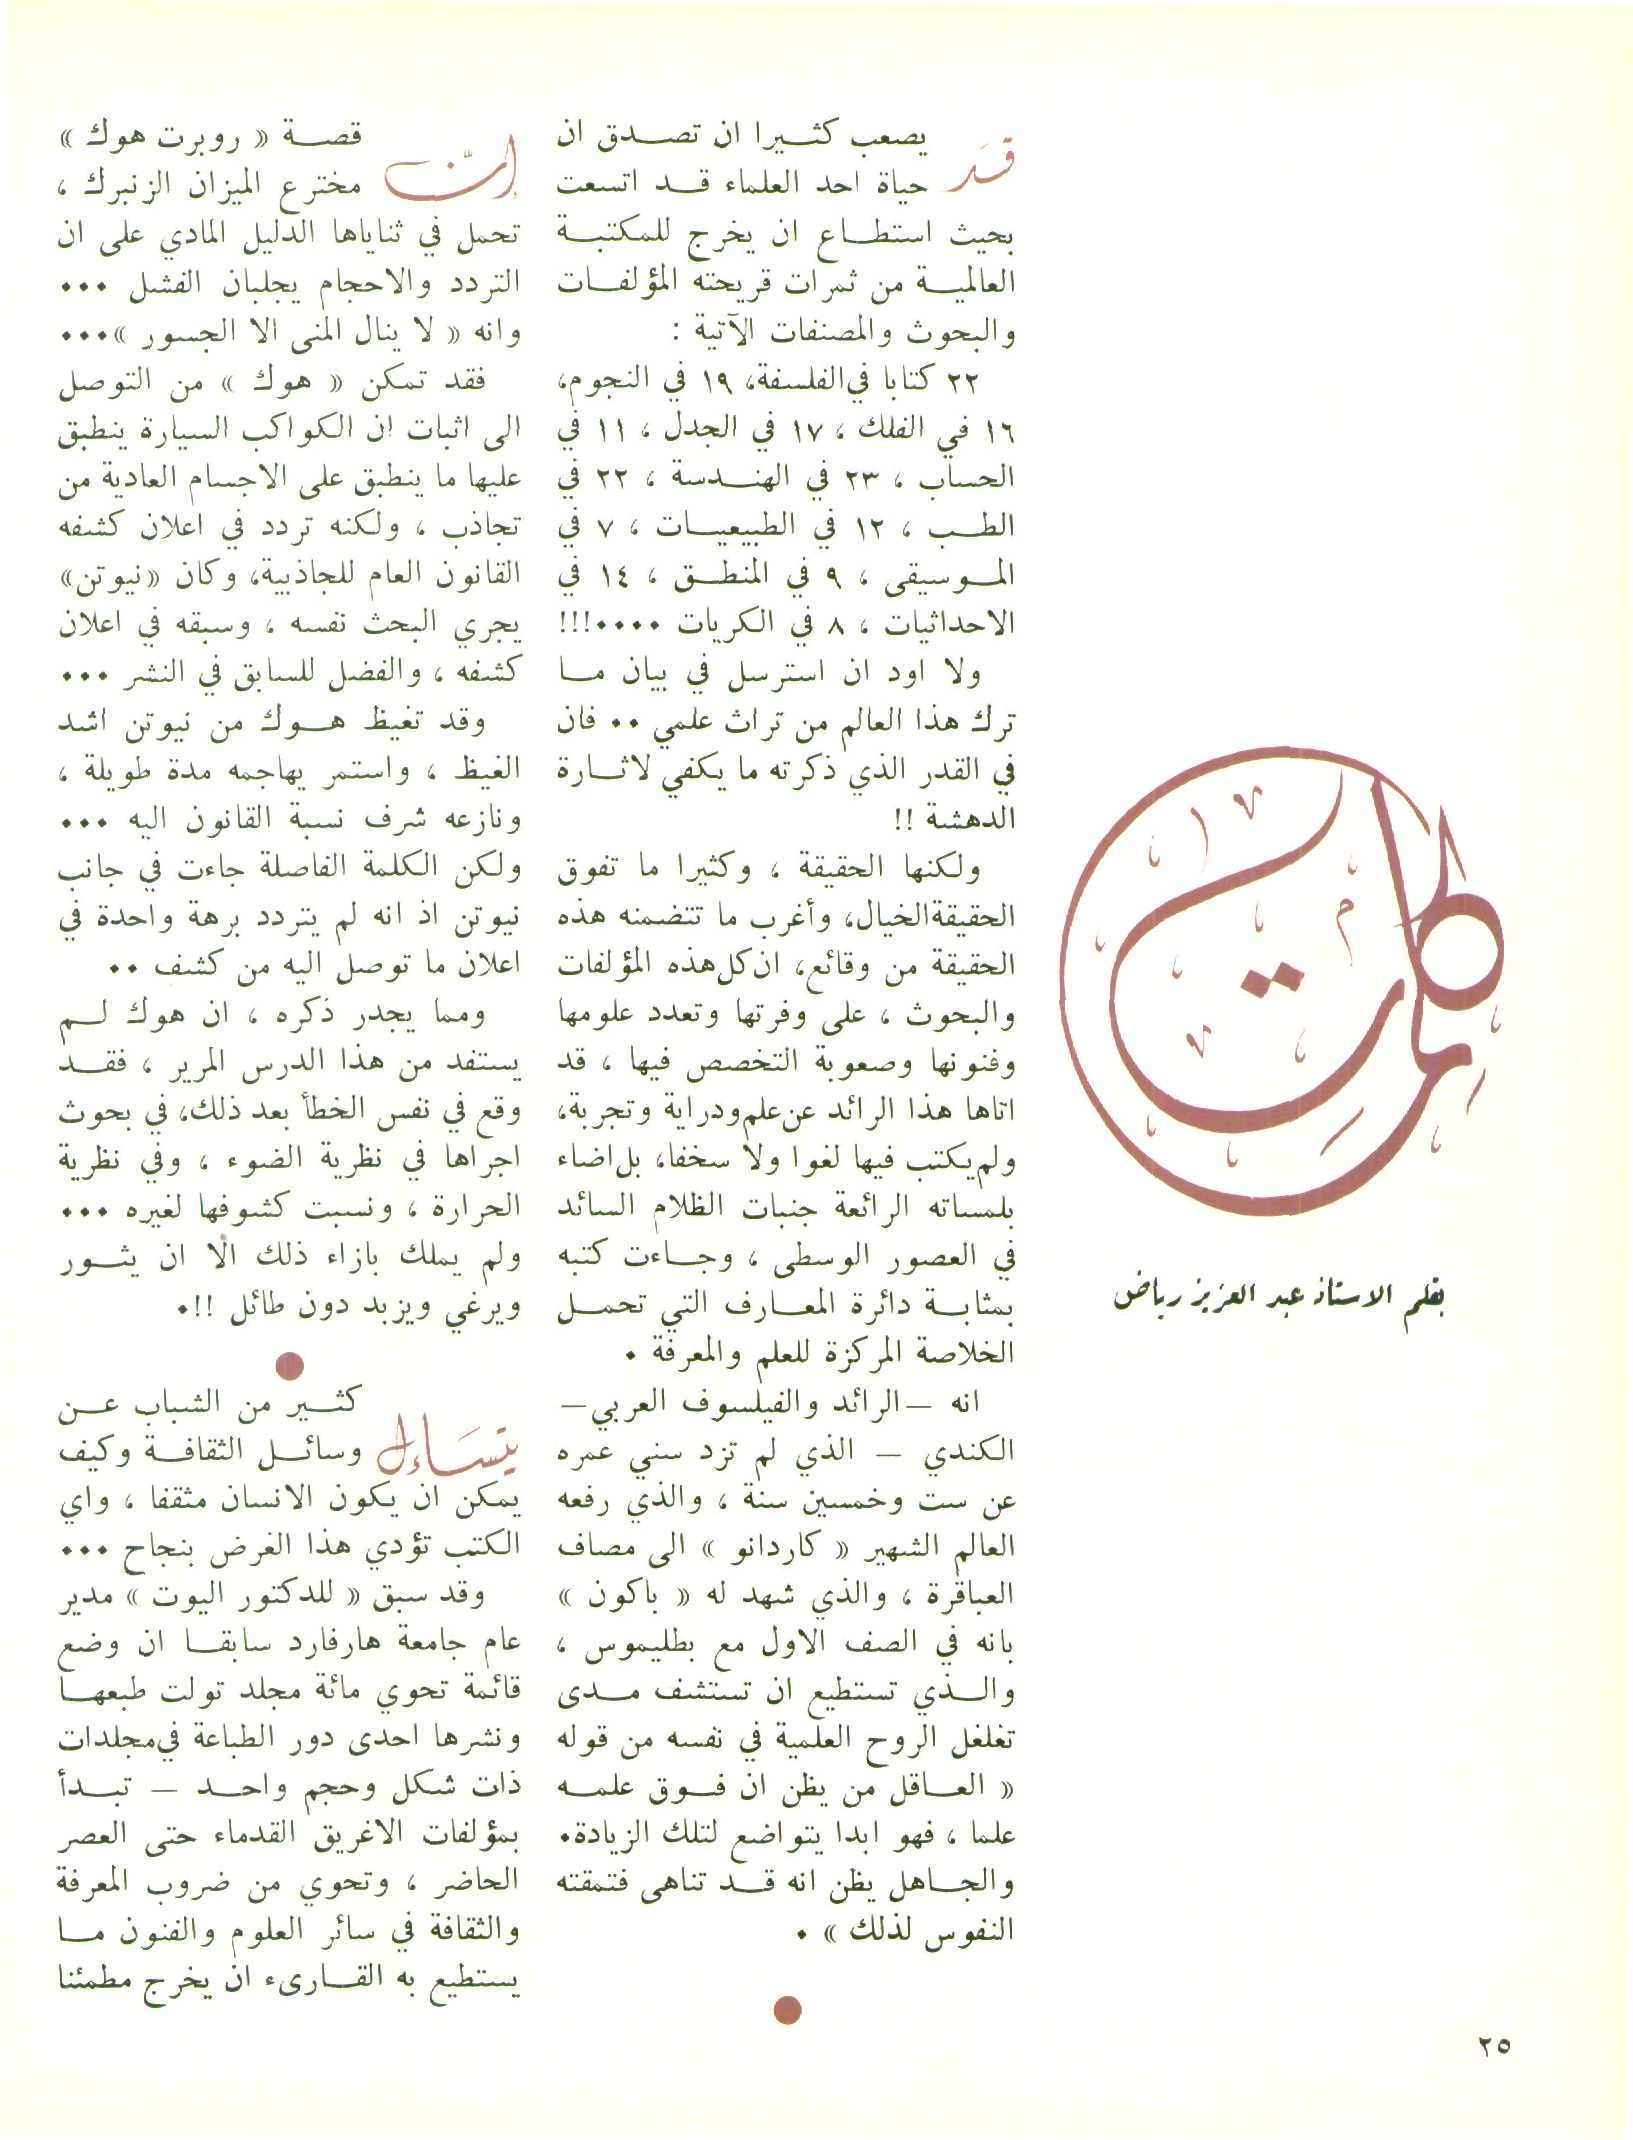 كلمات
بقلم الاستاذ عبد العزيز رياض
قد يصعب كثيرا ان تصدق ان
حياة احد العلماء قد اتسعت
بحيث استطاع ان يخرج للمكتبة
العالمية من ثمرات قريحته المؤلفات
والبحوث والمصنفات الآتية :
٢٢ كتابا في الفلسفة، ١٩ في النجوم،
١٦ في الفلك ، ١٧ في الجدل ، ١١ في
الحساب ، ٢٣ في الهندسة ، ٢٢ في
الطب ، ١٢ في الطبيعيات ، ٧ في
الموسيقى ، ٩ في المنطق ، ١٤ في
الاحداثيات ، ٨ في الكريات ....!!!
ولا اود ان استرسل في بيان ما
ترك هذا العالم من تراث علمي .. فان
في القدر الذي ذكرته ما يكفي لاثارة
الدهشة !!
ولكنها الحقيقة ، وكثيرا ما تفوق
الحقيقة الخيال، وأغرب ما تتضمنه هذه
الحقيقة من وقائع، ان كل هذه المؤلفات
والبحوث ، على وفرتها وتعدد علومها
وفنونها وصعوبة التخصص فيها ، قد
اتاها هذا الرائد عن علم ودراية وتجربة،
ولم يكتب فيها لغوا ولا سخفا، بل اضاء
بلمساته الرائعة جنبات الظلام السائد
في العصور الوسطى ، وجاءت كتبه
بمثابة دائرة المعارف التي تحمل
الخلاصة المركزة للعلم والمعرفة .
انه – الرائد والفيلسوف العربي –
الكندي – الذي لم تزد سني عمره
عن ست وخمسين سنة ، والذي رفعه
العالم الشهير « كاردانو » الى مصاف
العباقرة ، والذي شهد له « باكون »
بانه في الصف الاول مع بطليموس ،
والذي تستطيع ان تستشف مدى
تغلغل الروح العلمية في نفسه من قوله
« العاقل من يظن ان فوق علمه
علما ، فهو ابدا يتواضع لتلك الزيادة.
والجاهل يظن انه قد تناهى فتمقته
النفوس لذلك » .
إن قصة « روبرت هوك »
مخترع الميزان الزنبرك ،
تحمل في ثناياها الدليل المادي على ان
التردد والاحجام يجلبان الفشل ...
وانه « لا ينال المنى الا الجسور »...
فقد تمكن « هوك » من التوصل
الى اثبات ان الكواكب السيارة ينطبق
عليها ما ينطبق على الاجسام العادية من
تجاذب ، ولكنه تردد في اعلان كشفه
القانون العام للجاذبية، وكان «نيوتن»
يجري البحث نفسه ، وسبقه في اعلان
كشفه ، والفضل للسابق في النشر ...
وقد تغيظ هوك من نيوتن اشد
الغيظ ، واستمر يهاجمه مدة طويلة ،
ونازعه شرف نسبة القانون اليه ...
ولكن الكلمة الفاصلة جاءت في جانب
نيوتن اذ انه لم يتردد برهة واحدة في
اعلان ما توصل اليه من كشف ..
ومما يجدر ذكره ، ان هوك لم
يستفد من هذا الدرس المرير ، فقد
وقع في نفس الخطأ بعد ذلك، في بحوث
اجراها في نظرية الضوء ، وفي نظرية
الحرارة ، ونسبت كشوفها لغيره ...
ولم يملك بازاء ذلك الا ان يثور
ويرغي ويزبد دون طائل !!.
يتساءل كثير من الشباب عن
وسائل الثقافة وكيف
يمكن ان يكون الانسان مثقفا ، واي
الكتب تؤدي هذا الغرض بنجاح ...
وقد سبق « للدكتور اليوت » مدير
عام جامعة هارفارد سابقا ان وضع
قائمة تحوي مائة مجلد تولت طبعها
ونشرها احدى دور الطباعة في مجلدات
ذات شكل وحجم واحد – تبدأ
بمؤلفات الاغريق القدماء حتى العصر
الحاضر ، وتحوي من ضروب المعرفة
والثقافة في سائر العلوم والفنون ما
يستطيع به القارىء ان يخرج مطمئنا
٢٥